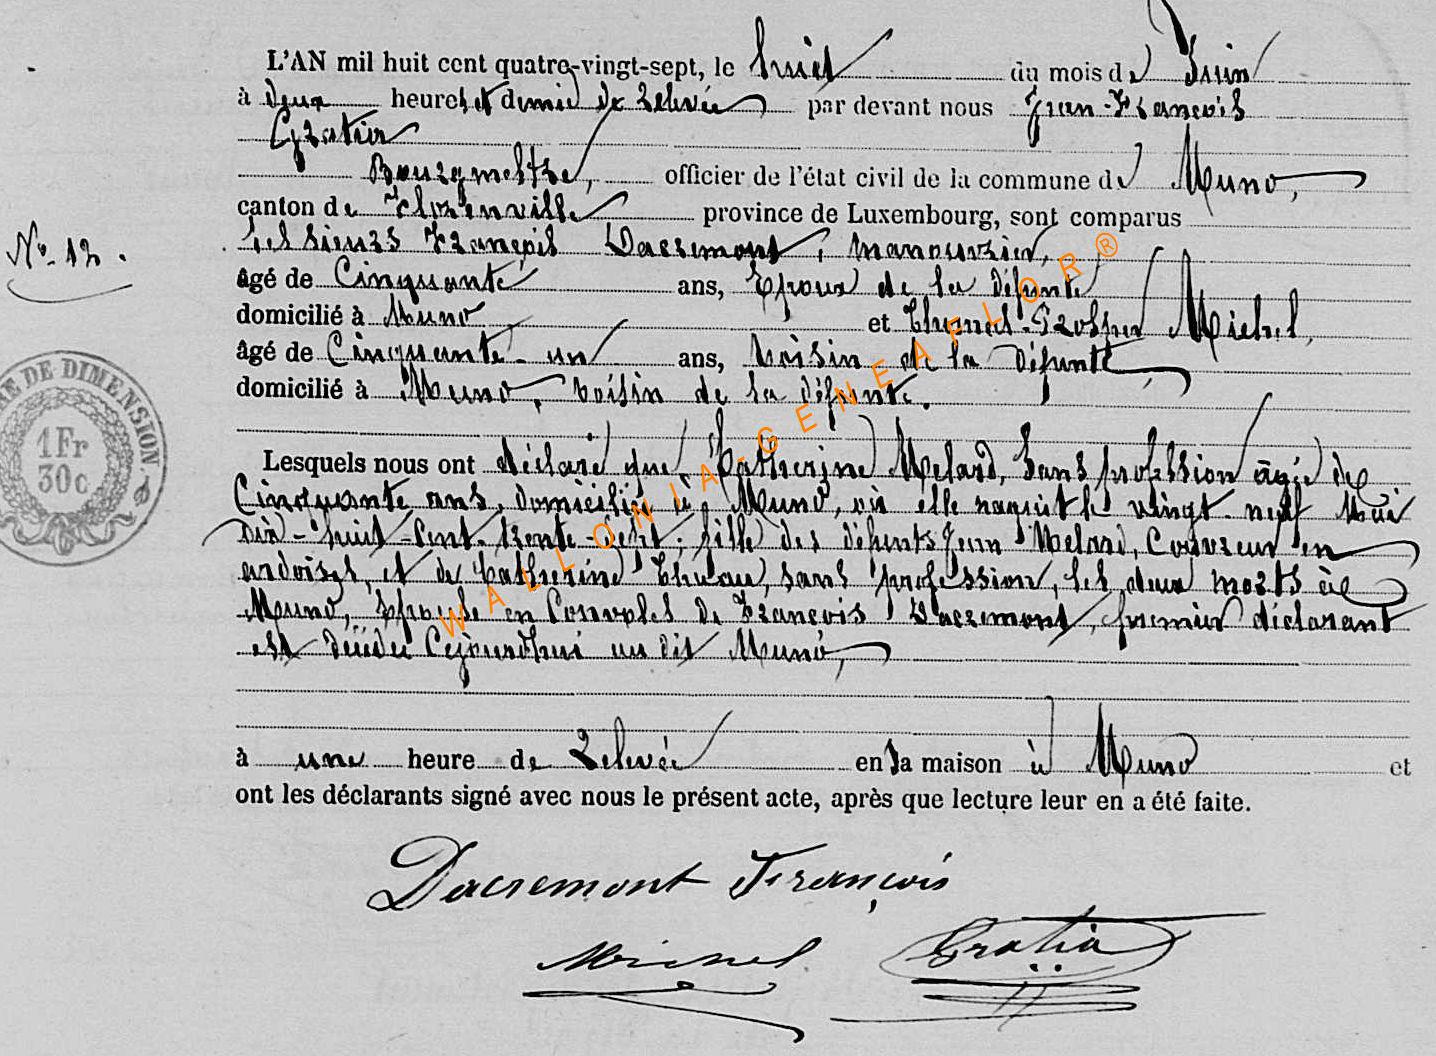 L'AN mil huit cent quatre-vingt-sept, le huit du mois de Juin
à deux heures et demie de relevée par devant nous Jean-François
Gratia
Bourgmestre, officier de l'état civil de la commune de Muno,
canton de Florenville province de Luxembourg, sont comparus
N°. 12.
les sieurs François Dacremont, manouvrier,
âgé de Cinquante ans, Epoux de la défunte
domicilié à Muno et Prosper Michel,
âgé de Cinquante-un ans, voisin de la défunte,
domicilié à Muno, voisin de la défunte.
Lesquels nous ont déclaré que Catherine Melard, sans profession âgée de
Cinquante ans, domiciliée à Muno, où elle naquit le vingt-neuf Mai
Dix-huit-Cent-trente-sept; fille des défunts Jean Melard, Couvreur en
ardoises, et de Catherine sans profession, les deux morts à
Muno, Epouse en de François Dacremont, premier déclarant
est décédée Cejourd'hui au dit Muno,
à une heure de relevée en sa maison à Muno et
ont les déclarants signé avec nous le présent acte, après que lecture leur en a été faite.
Dacremont François
Michel Gratia
DE DIMENSION.
1 Fr
30c
WALLONIA-GENEAFLOR®